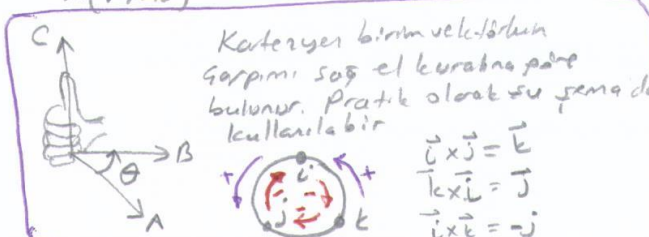 C
Kartezyen birim vektörlerin
çarpımı sağ el kuralına göre
bulunur. Pratik olarak şu şema da
kullanılabilir
B
θ
A
+ i +
- -
j - k
i⃗ x j⃗ = k⃗
k⃗ x i⃗ = j⃗
i⃗ x k⃗ = -j